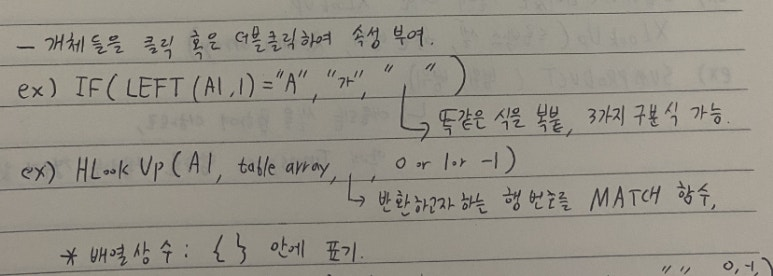 - 개체들을 클릭 혹은 더블클릭하여 속성 부여.
ex) IF( LEFT (A1, 1) = "A", "가", "  " )
↳ 똑같은 식을 복붙, 3가지 구분식 가능.
ex) HLook Up ( A1, table array,   , 0 or 1 or -1 )
↳ 반환하고자 하는 행 번호를 MATCH 함수,
* 배열상수 : { } 안에 표기.
" " 0, -1, )